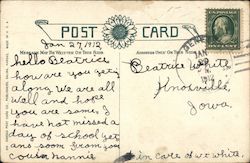 POST CARD
MESSAGE MAY BE WRITTEN ON THIS SIDE
ADDRESS ONLY ON THIS SIDE
Jan 27, 1912
hello Beatrice
how are you getting
along. We are all
well and hope
you are same. I
have not missed a
day of school yet
ans soon from your
cousin nannie
Beatrice White
Knoxville,
Iowa.
in care of wt white